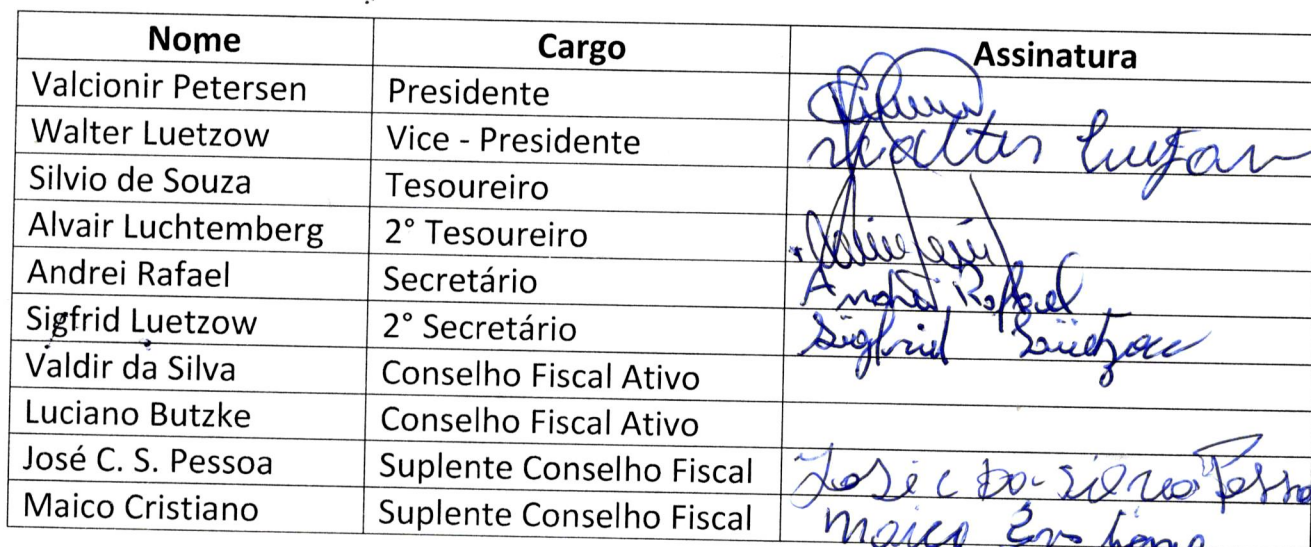 Nome Cargo Assinatura
Valcionir Petersen Presidente
Walter Luetzow Vice - Presidente Walter
Silvio de Souza Tesoureiro
Alvair Luchtemberg 2° Tesoureiro
Andrei Rafael Secretário Andrei Rafael
Sigfrid Luetzow 2° Secretário Sigfrid
Valdir da Silva Conselho Fiscal Ativo
Luciano Butzke Conselho Fiscal Ativo
José C. S. Pessoa Suplente Conselho Fiscal José C da Silva
Maico Cristiano Suplente Conselho Fiscal Maico